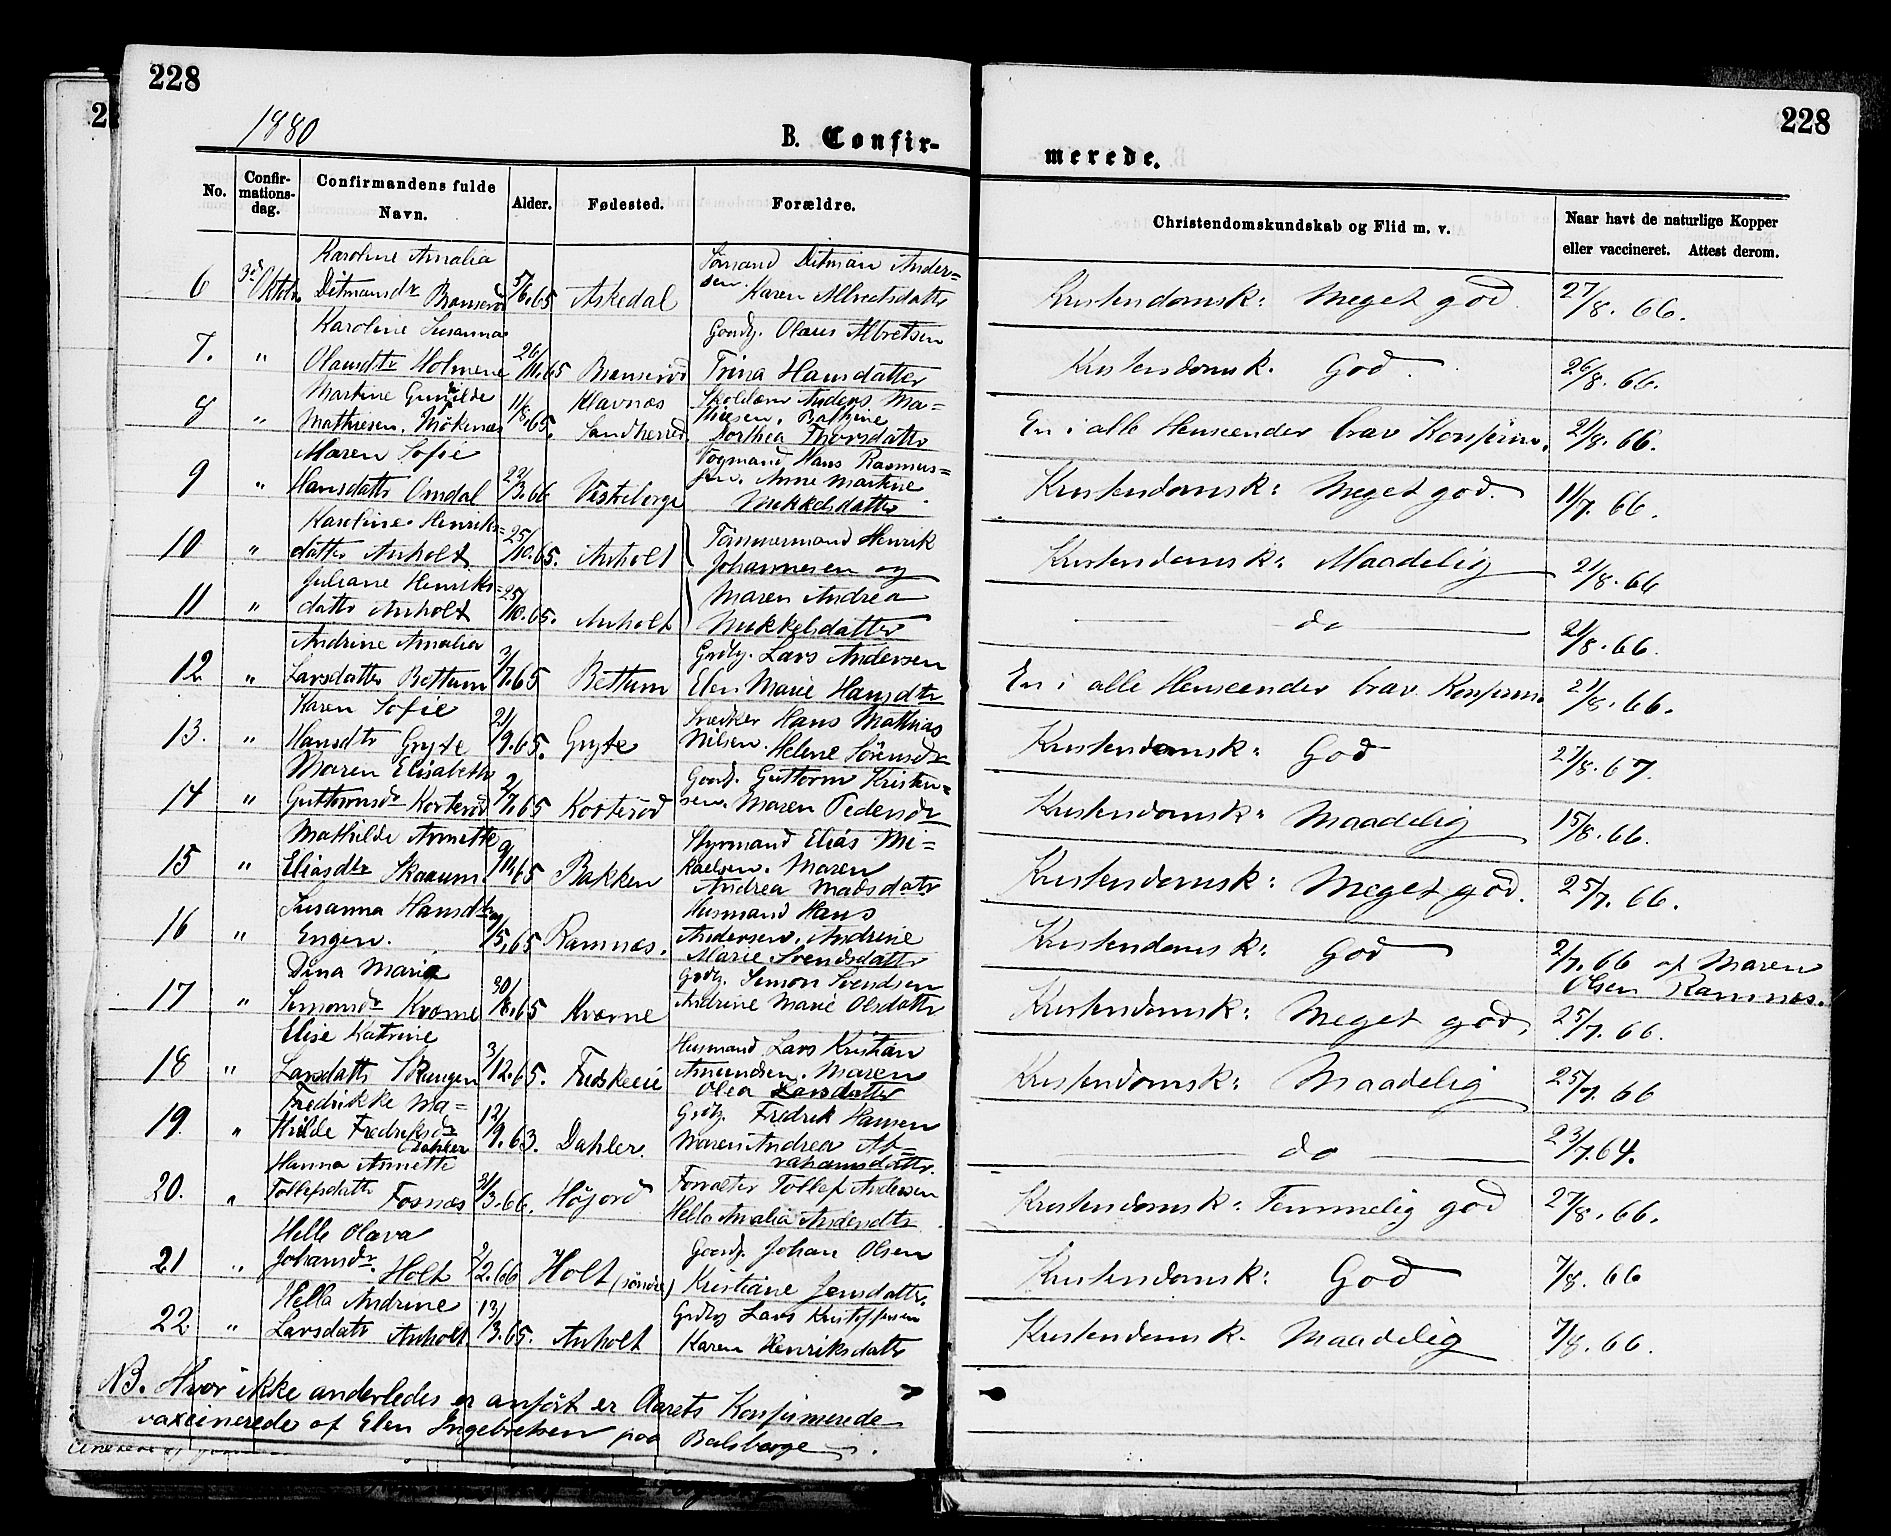 228
228
2
1880
B. Confir-
merede.
No.
Confir-
mations-
dag.
Confirmandens fulde
Navn.
Alder.
Fødested.
Forældre.
Christendomskundskab og Flid m. v.
Naar havt de naturlige Kopper
eller vaccineret. Attest derom.
Karoline Amalia
Sømand Ditman Ander=
sen.
6 3d Oktbr Ditmansdr 5/6.65 Askedal Karen Albretsdatter Kristendomsk: Meget god 27/8. 66.
Karoline Susanna
Gaardb. Olaus Albretsen
7. " Olausdtr Holmene 26/11.65 Trina Hansdatter Kristendomsk. God 26/8. 66.
Martine Gunilde 11/8.65. Klavnæs Anders Ma=
8 " Mathiesen. Sandherred thiesen. Bathine En i alle Henseender brav Konfirm. 21/8. 66.
Dorthea Thorsdatter
Maren Sofie
Hans Rasmus=
9 " Hansdatter Omdal 22/3.66 sen. Anne Martine Kristendomsk: Meget god. 11/7. 66.
Mikkelsdatter
Karoline Henriks=
Tømmermand Henrik
10 " datter Anholt 25/10.65. Anholt Johannesen og Kristendomsk: Maadelig 21/8. 66
Juliane Henriks=
Maren Andrea
11 " datter Anholt 25/10.65. Anholt Mikkelsdatter do 21/8. 66.
Andrine Amalia
Grdbg. Lars Andersen
12 " Larsdatter Bettum 3/7.65 Bettum Elen Marie Hansdtr En i alle Henseender brav Konfirm. 21/8. 66.
Karen Sofie
Snedker Hans Mathias
13. " Hansdtr Gryte 21/9.65. Gryte Nilsen. Helene Sörensdr Kristendomsk: God 27/8. 67.
Maren Elisabeth
Gaardb. Guttorm Kristen=
14 " Guttormsdr Korterød 2/7.65 Korterød sen. Maren Pedersdr Kristendomsk: Maadelig 15/8. 66.
Mathilde Annette
Styrmand Elias Mi=
15 " Eliasdtr Skaaum. 9/11.65 Bakken kaelsen. Maren Kristendomsk: Meget god. 25/7. 66.
Andrea Madsdatr
Susanna Hansdtr
Husmand Hans
16 " Engen. Ramnæs. Andersen. Andrine Kristendomsk: God 2/7. 66 af Maren
Marie Svendsdatter Olsen Ramnæs.
Dina Maria
Grdbg. Simon Svendsen
17 " Simonsdr Kværne Kværne Andrine Marie Olsdatter Kristendomsk: Meget god. 25/7. 66.
Elise Katrine
Husmand Lars Kristian
18 " Larsdatter 3/12.65. Amundsen. Maren Kristendomsk: Maadelig 25/7. 66
Olea Larsdatter
Fredrikke Ma=
Grdbg. Fredrik Hansen
19. " thilde Fredriksdr 12/9.63. Dahler. Maren Andrea Ab= do 23/7.64.
Dahler
rahamsdatter.
Hanna Annette
Forvalter Tollef Andersen
20. " Tollefsdatter Fosnæs 31/3.66. Höjord Hella Amalia Andersdtr Kristendomsk: Temmelig god 27/8. 66.
Helle Olava
Gaardb. Johan Olsen
21 " Johansdr. Holt 2/2.66 Holt (søndre) Kristiane Jensdatter. Kristendomsk: God 7/8. 66
Hella Andrine
Grdbg Lars Kristoffersen
22 " Larsdatr Anholt. 13/13.65. Anholt Karen Henriksdatter Kristendomsk. Maadelig 7/8. 66.
NB. Hvor ikke anderledes er anfört er Aarets Konfirmerede
vaxcinerede af Elen Ingebretsen paa Balsberge.